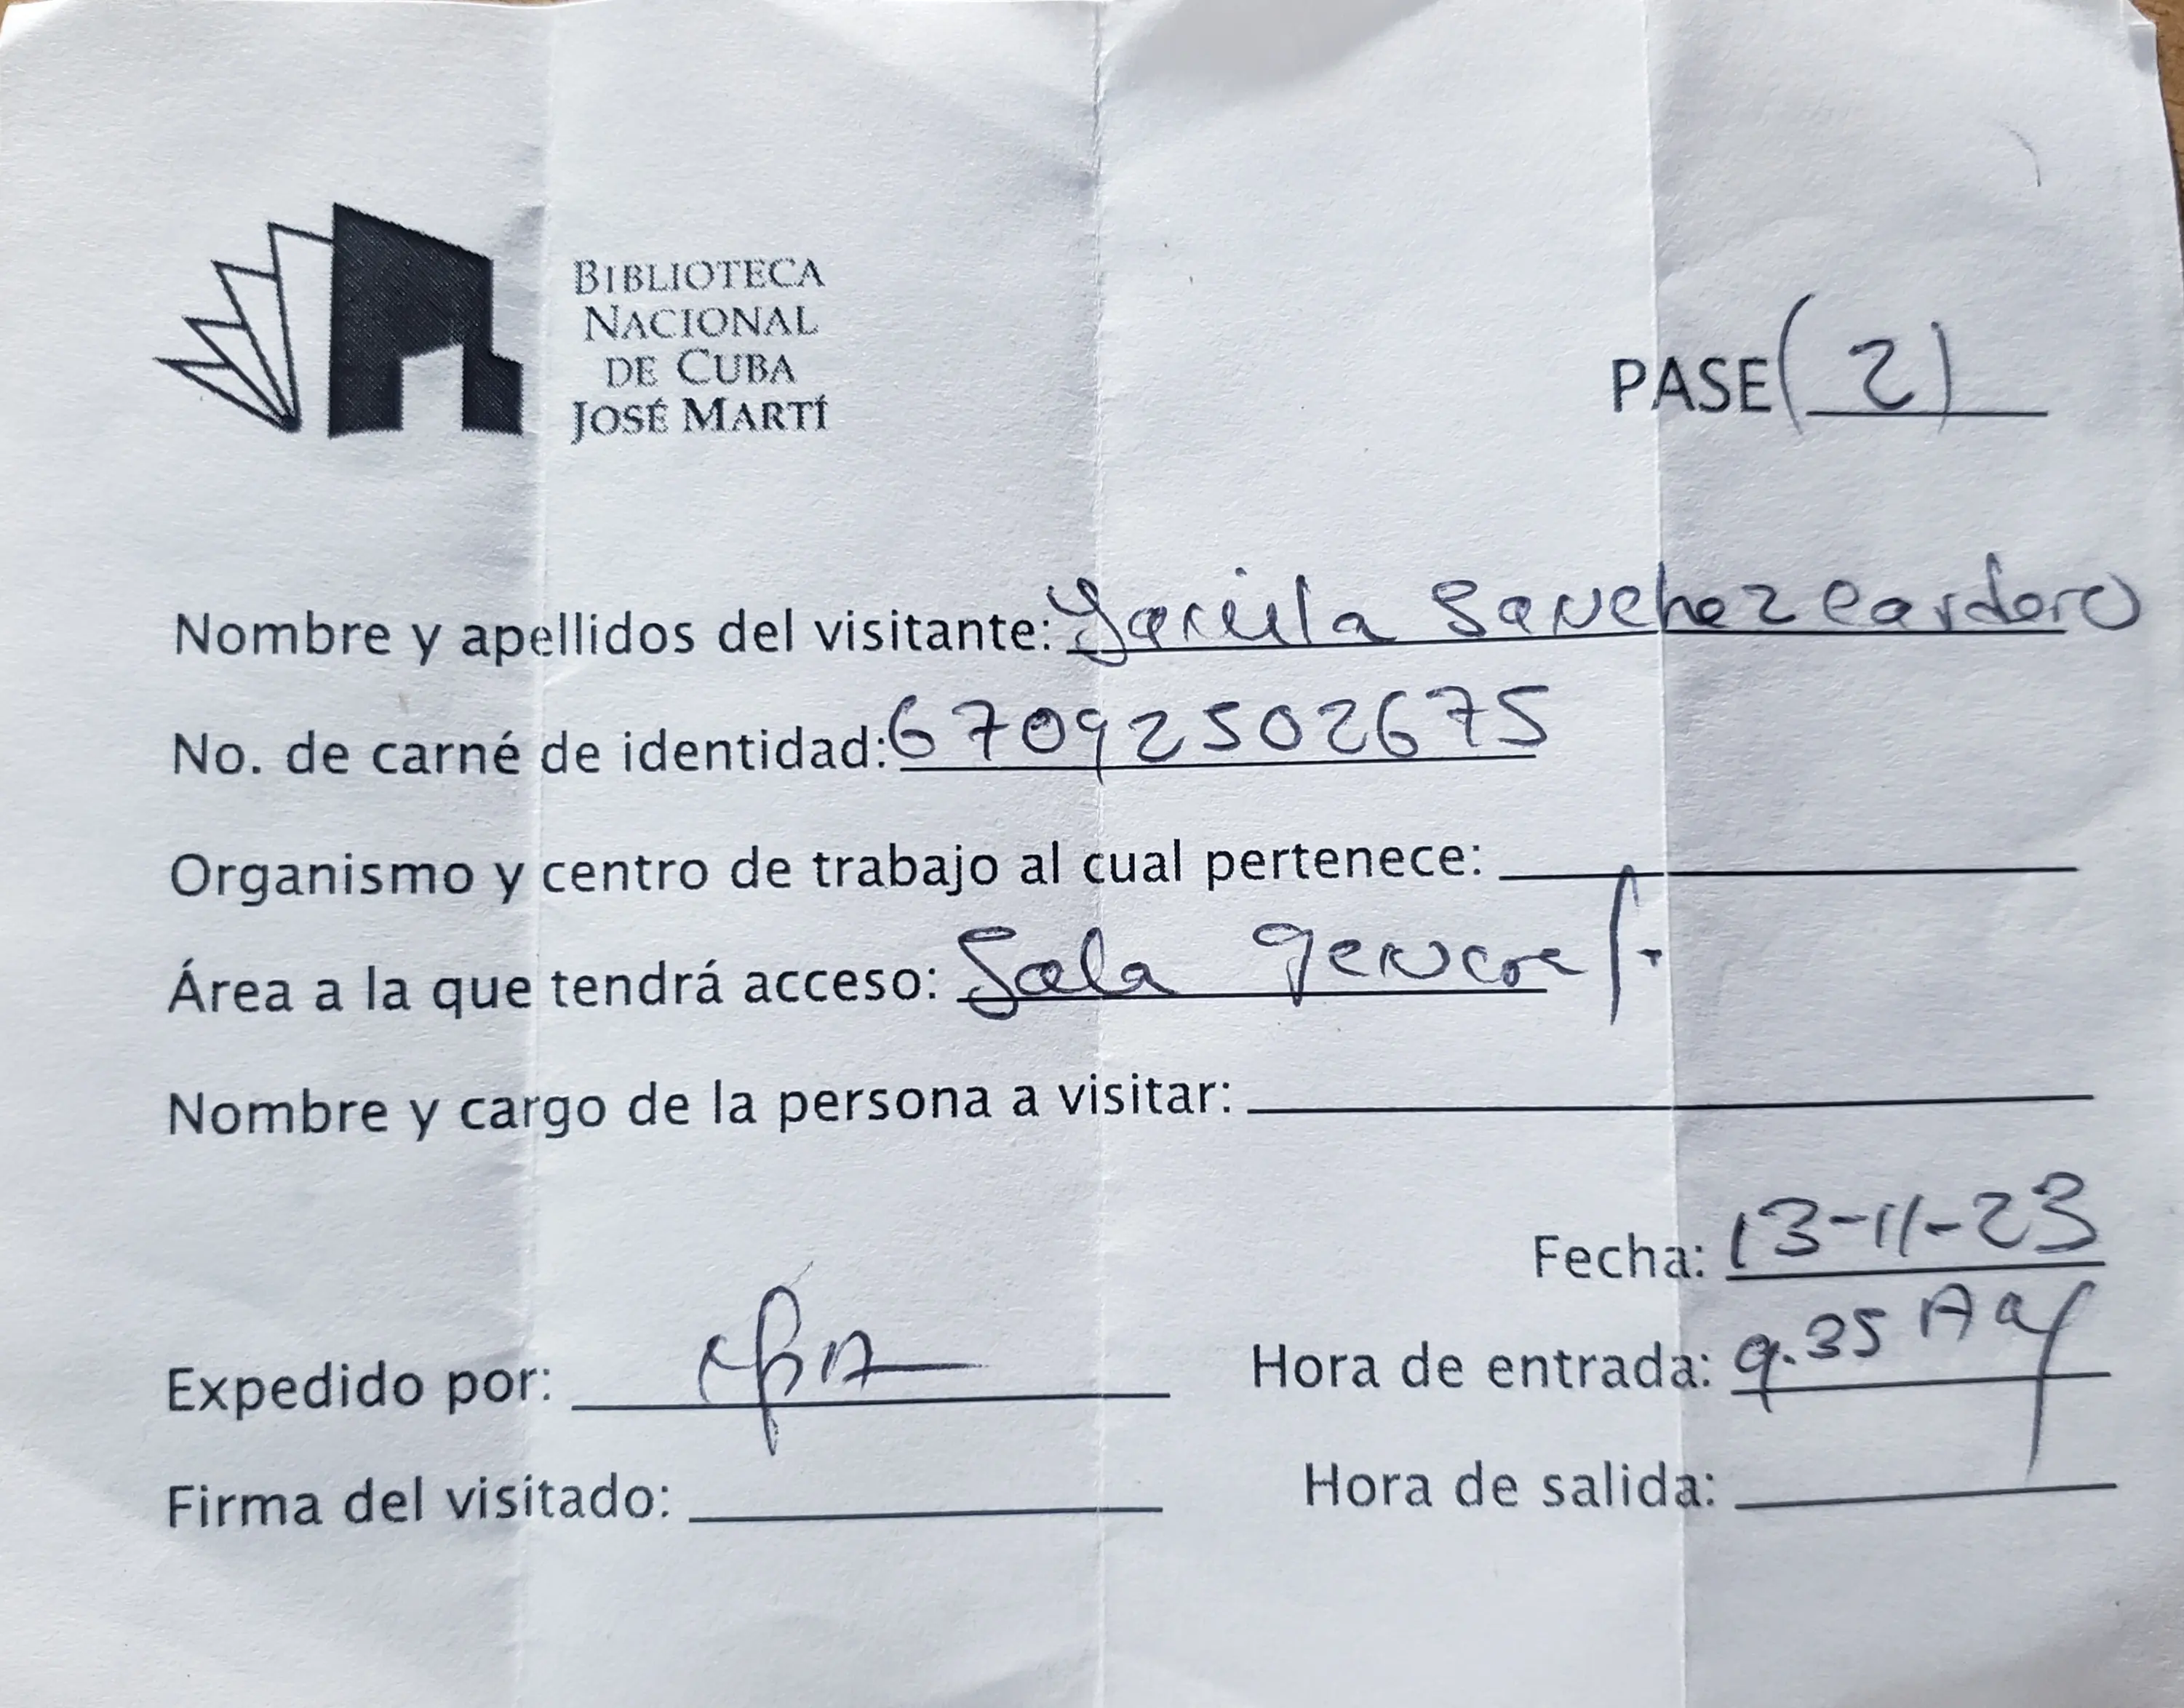 BIBLIOTECA
NACIONAL
DE CUBA
JOSÉ MARTÍ
PASE (2)
Nombre y apellidos del visitante: Sanchez Cardero
No. de carné de identidad: 67092502675
Organismo y centro de trabajo al cual pertenece:
Área a la que tendrá acceso: Sala general.
Nombre y cargo de la persona a visitar:
Fecha: 13-11-23
Expedido por:
Hora de entrada: 9.35
Firma del visitado:
Hora de salida: